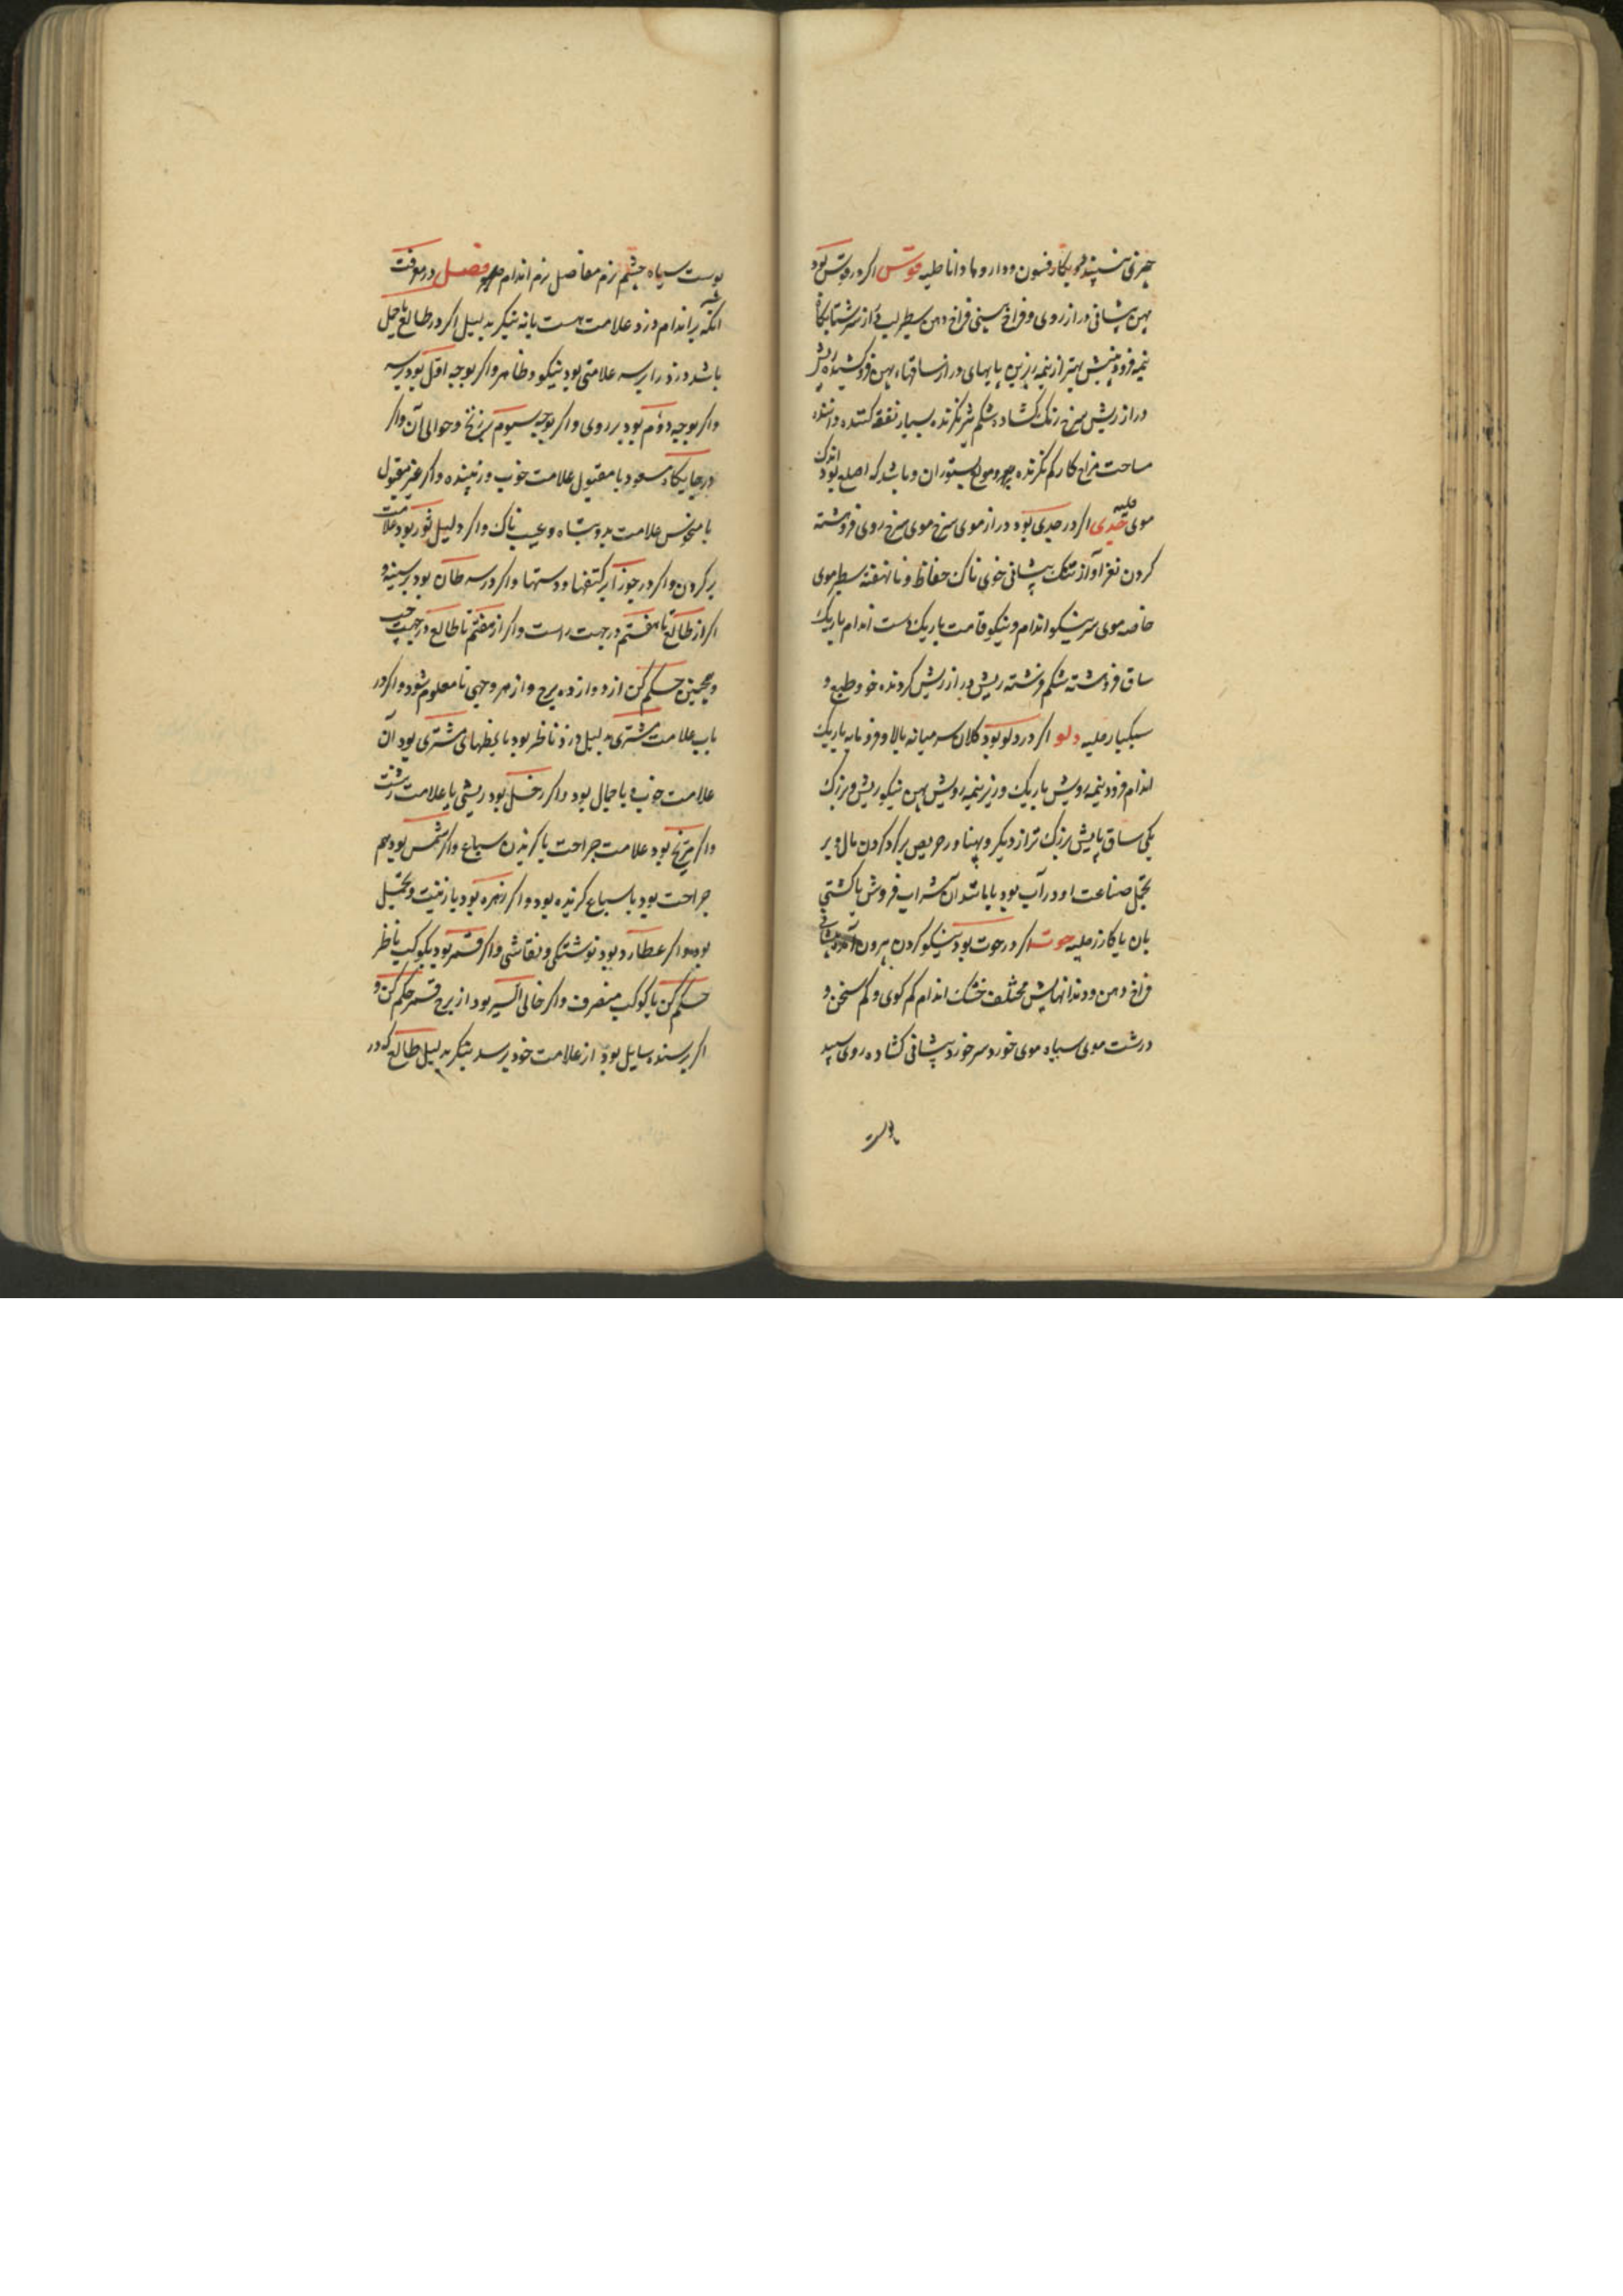 چیزی سپید و بکار فسون و داروها دانا حلیه قوس اکر در قوس بود
پهن پیشانی دراز روی و فراخ بینی فراخ دهن سطبر لب دراز سرشتابکار
نیمه فرودینش بهتر از نیمه زبرین پایهای دراز ساقهاء پهن فروکشیده ریش
دراز ریش سرخ رنک کشاده شکم شر نکرنده بسیار نفقه کننده داننده
مساحت مزاح کار کم نکرنده و مولع بستوران و باشد که اصلع بود اندک
موی حلیه جدی اکر در جدی بود دراز موی سرخ موی سرخ روی فروهشته
کردن نغز آواز تنک پیشانی خوی ناک حفاظ و نانهفته سطبر موی
خاصه موی سر نیکو اندام و نیکو قامت باریک دست اندام باریک
ساق فروهشته شکم فرشته ریش دراز ریش کرونده خو و طبع و
سبکبار حلیه دلو اکر در دلو بود کلان سر میانه بالا و فرومایه باریک
اندام فرود نیمه رویش باریک و زیر نیمه رویش پهن نیکو ریش و بزرک
یکی ساق پایش بزرک تر از دیکر و پهناور حریص بر کرد کردن مال و بر
تجمل صناعت او در آب بود یا باشد آن شراب فروش یا کشتی
بان یا کازر حلیه حوت اکر در حوت بود نیکو کردن بیرون آمده پیشانی
فراخ دهن و دندانهایش مختلف خشک اندام کم کوی و کم سخن و
درشت موی سیاه موی خورد سر خورد پیشانی کشاده روی سپید
پوست
پوست سیاه چشم نرم مفاصل نرم اندام فصل در معرفت
انکه بر اندام دزد علامت هست یا نه بنکر بدلیل اکر در طالع یا حمل
باشد دزد را بر سر علامتی بود نیکو و ظاهر واکر بوجه اول بود بر سر
واکر بوجه دوم بود بر روی واکر بوجه سیوم بر زنخ و حوالی آن واکر
در جایکاه مسعود با مقبول علامت خوب و زیبنده واکر غیر مقبول
با منحوس علامت بد و تباه و عیب ناک واکر دلیل ثور بود علامت
بر کردن واکر در جوزا بر کتفها و دستها واکر در سرطان بود بر سینه و
اکر از طالع تا هفتم در جهت راست واکر از هفتم تا طالع در جهت چپ
و همچنین حکم کن از دوازده برج و از هر وجهی تا معلوم شود واکر در
باب علامت مشتری بدلیل دزد ناظر بود یا بخطهای مشتری بود آن
علامت خوب و با جمال بود واکر زحل بود ریشی یا علامت زشت
واکر مریخ بود علامت جراحت یا کزیدن سباع واکر شمس بود هم
جراحت بود یا سباع کزیده بود واکر زهره بود با زینت و تجمل
بود واکر عطارد بود نوشتکی و نقاشی واکر قمر بود بکوکب ناظر
حکم کن یا کوکب منصرف واکر خالی السیر بود از برج قمر حکم کن و
اکر پرسنده سایل بود از علامت خود پرسد بنکر بدلیل طالع که در